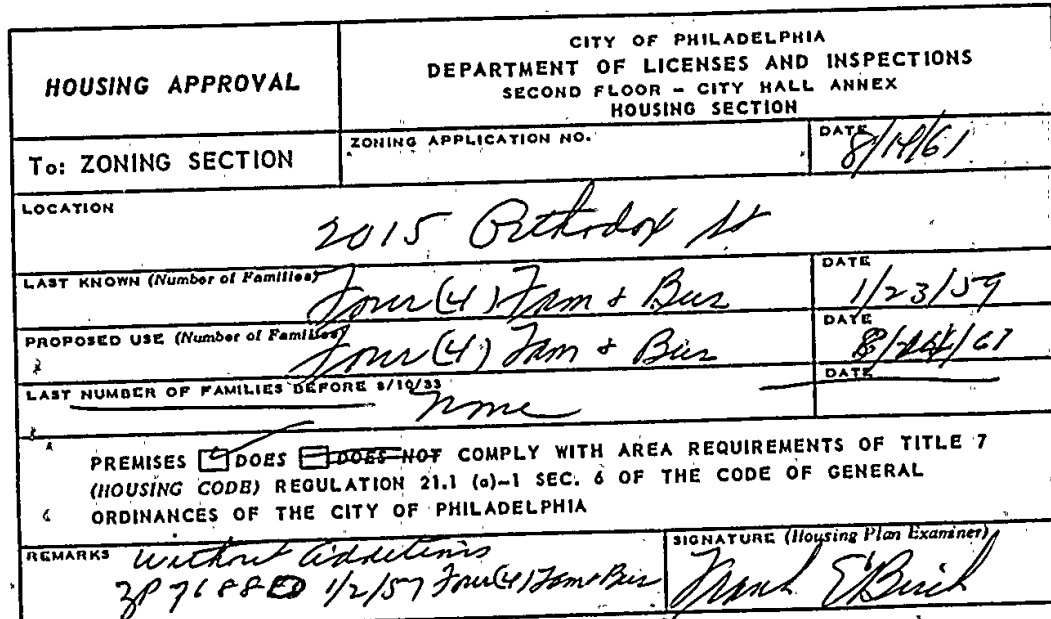 HOUSING APPROVAL
CITY OF PHILADELPHIA
DEPARTMENT OF LICENSES AND INSPECTIONS
SECOND FLOOR - CITY HALL ANNEX
HOUSING SECTION
To: ZONING SECTION
ZONING APPLICATION NO.
DATE
8/14/61
LOCATION
2015 Orthodox St
LAST KNOWN (Number of Families)
Four (4) Fam & Bus
DATE
1/23/59
PROPOSED USE (Number of Families)
Four (4) Fam & Bus
DATE
LAST NUMBER OF FAMILIES BEFORE 8/10/33
None
DATE
PREMISES DOES DOES NOT COMPLY WITH AREA REQUIREMENTS OF TITLE 7
(HOUSING CODE) REGULATION 21.1 (a)-1 SEC. 6 OF THE CODE OF GENERAL
ORDINANCES OF THE CITY OF PHILADELPHIA
REMARKS
without additions
1/2/57 Four (4) Fam & Bus
SIGNATURE (Housing Plan Examiner)
Frank E Birch